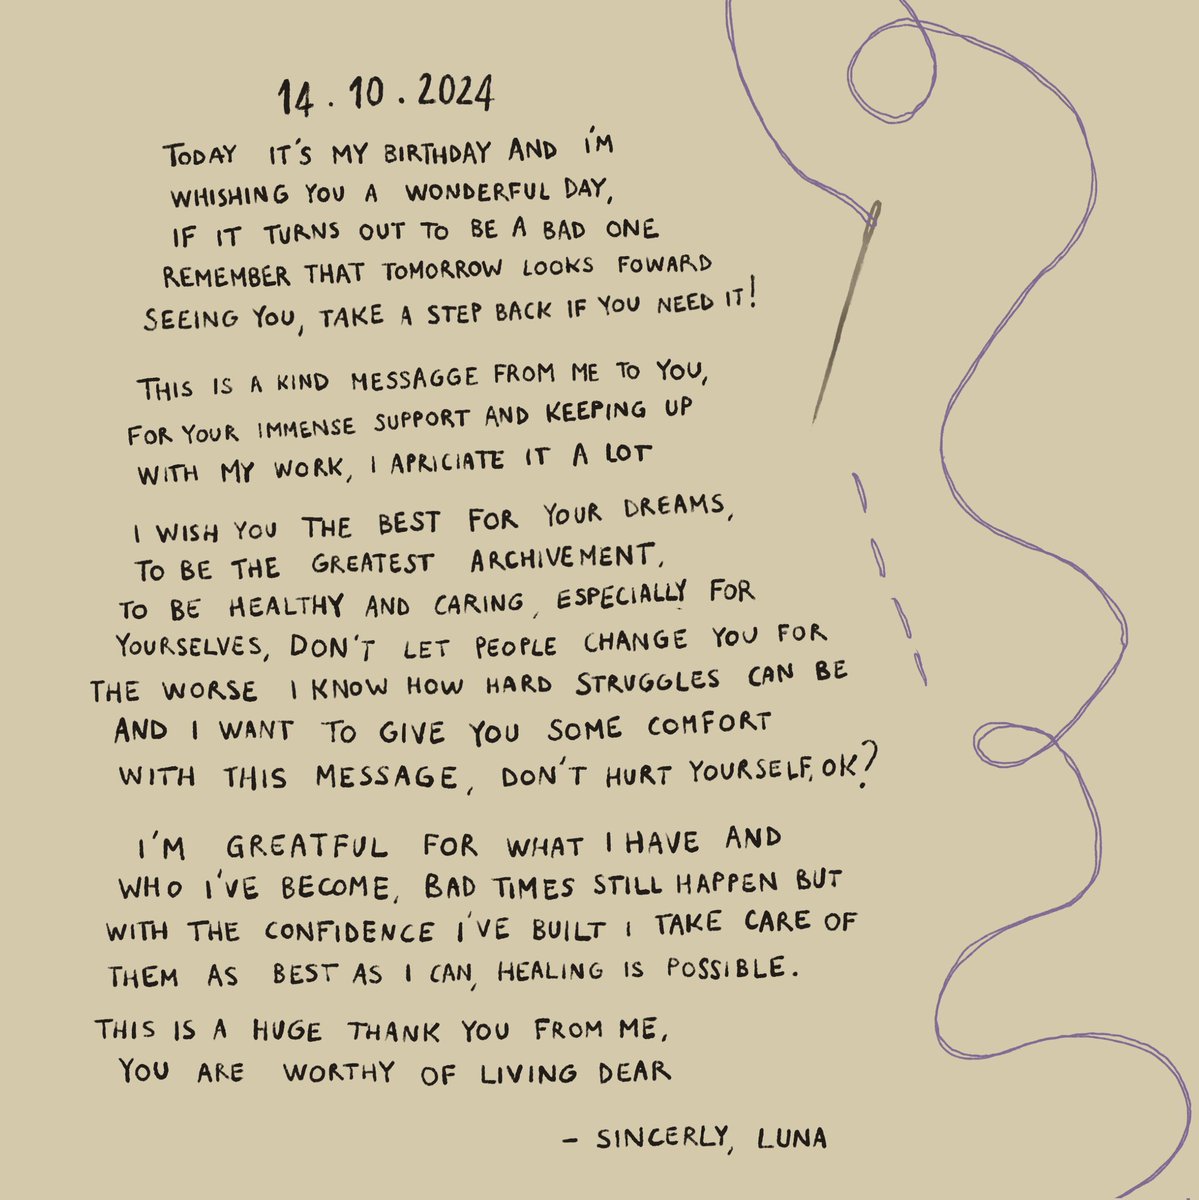 14.10.2024
TODAY IT'S MY BIRTHDAY AND I'M
WHISHING YOU A WONDERFUL DAY,
IF IT TURNS OUT TO BE A BAD ONE
REMEMBER THAT TOMORROW LOOKS FOWARD
SEEING YOU, TAKE A STEP BACK IF YOU NEED IT!
THIS IS A KIND MESSAGGE FROM ME TO YOU,
FOR YOUR IMMENSE SUPPORT AND KEEPING UP
WITH MY WORK, I APRICIATE IT A LOT
I WISH YOU THE BEST FOR YOUR DREAMS,
TO BE THE GREATEST ARCHIVEMENT,
TO BE HEALTHY AND CARING, ESPECIALLY FOR
YOURSELVES, DON'T LET PEOPLE CHANGE YOU FOR
THE WORSE I KNOW HOW HARD STRUGGLES CAN BE
AND I WANT TO GIVE YOU SOME COMFORT
WITH THIS MESSAGE, DON'T HURT YOURSELF, OK?
I'M GREATFUL FOR WHAT I HAVE AND
WHO I'VE BECOME, BAD TIMES STILL HAPPEN BUT
WITH THE CONFIDENCE I'VE BUILT I TAKE CARE OF
THEM AS BEST AS I CAN, HEALING IS POSSIBLE.
THIS IS A HUGE THANK YOU FROM ME,
YOU ARE WORTHY OF LIVING DEAR
- SINCERLY, LUNA